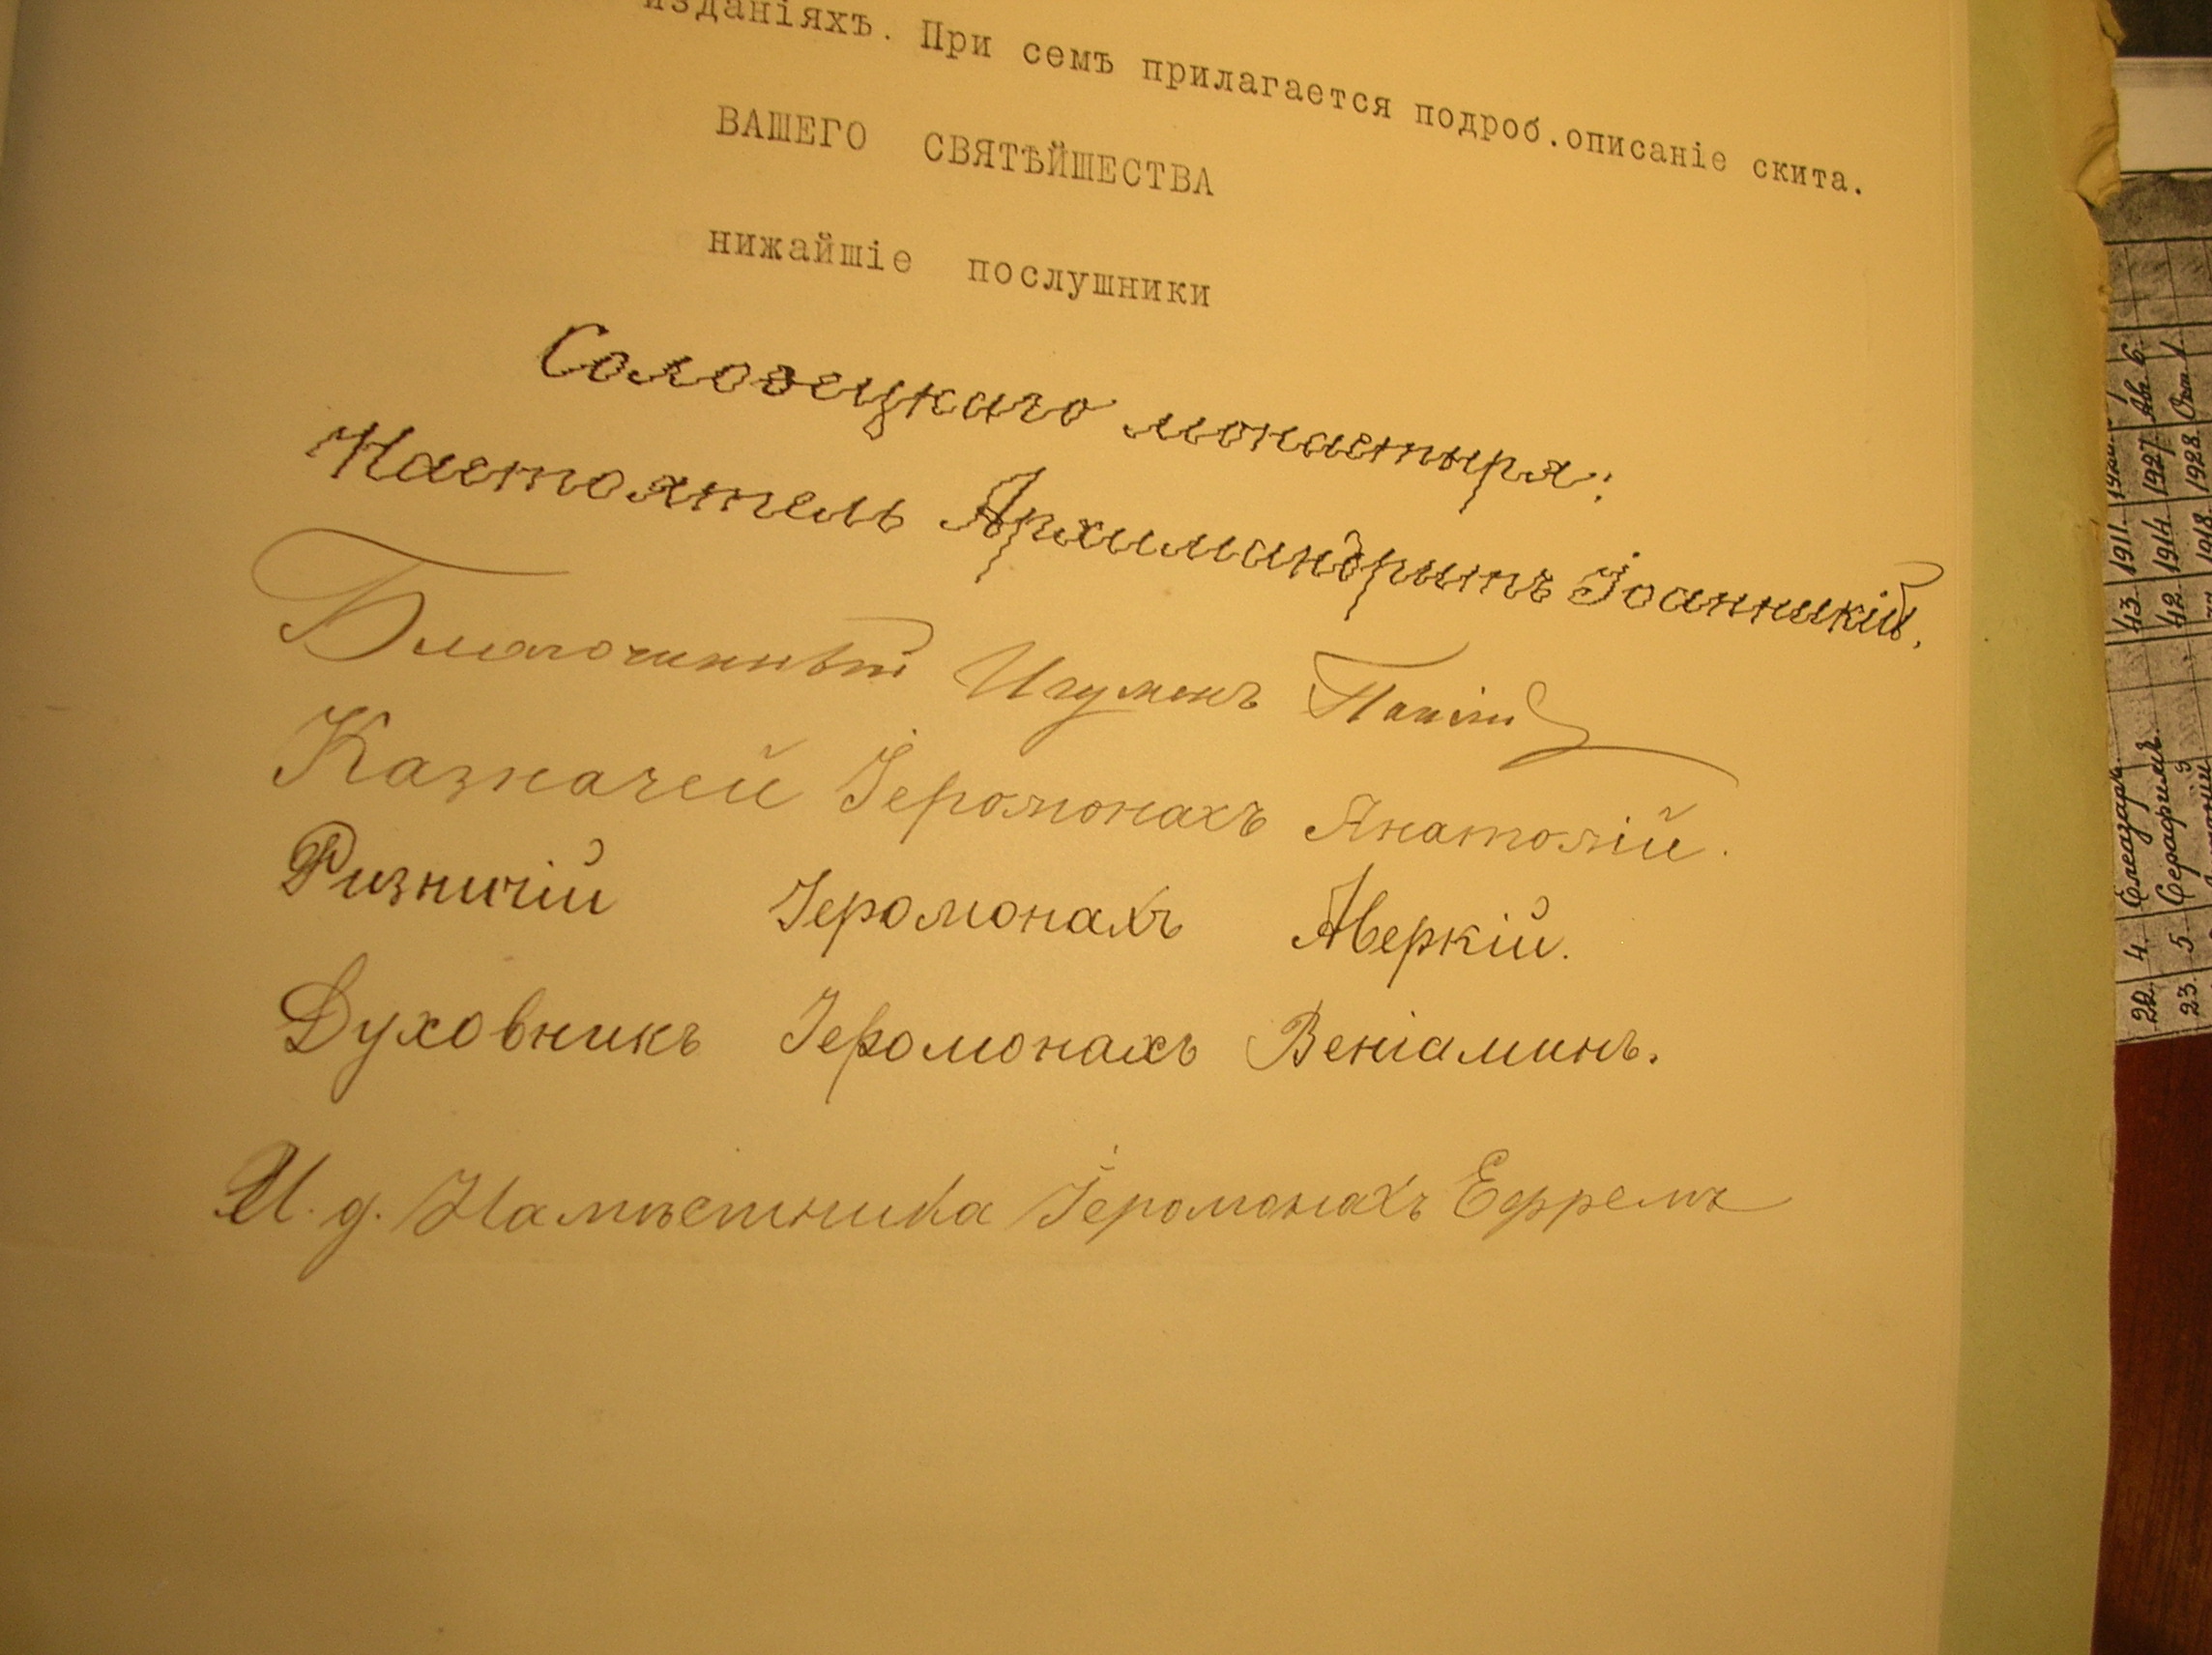 изданіяхъ. При семъ прилагается подроб.описаніе скита.
ВАШЕГО СВЯТѢЙШЕСТВА
нижайшіе послушники
Соловецкаго монастыря:
Настоятель Архимандритъ Іоанникій.
Благочинный Игуменъ
Казначей Іеромонахъ Анатолій.
Ризничій Іеромонахъ Аверкій.
Духовникъ Іеромонахъ Веніаминъ.
И. д. Намѣстника Іеромонахъ Ефремъ
22. 4. Елеазаръ. 43. 1911.
23. 5. Серафимъ. 42. 1914. 1927. Ав. 6.
1918. 1928. Окт. 1.